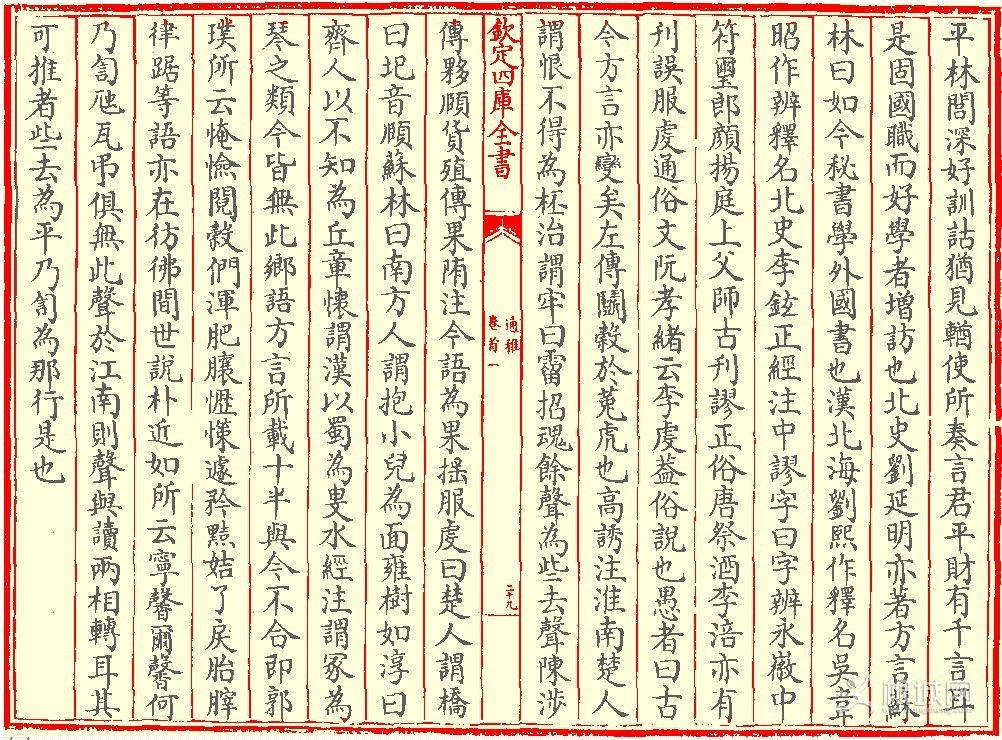 平林閭深好訓詁猶見輶使所奏言君平財有千言耳
是固國職而好學者増訪也北史劉延明亦著方言蘇
林曰如今秘書學外國書也漢北海劉熙作釋名吳韋
昭作辨釋名北史李鉉正經注中謬字曰字辨永徽中
符璽郎顔揚庭上父師古刋謬正俗唐祭酒李涪亦有
刋誤服虔通俗文阮孝緒云李虔葢俗説也愚者曰古
今方言亦變矣左傳鬭榖於菟虎也高誘注淮南楚人
謂恨不得為柸治謂牢曰霤招魂餘聲為些去聲陳涉
欽定四庫全書
通雅
卷首一
二十九
傳夥頤貨殖傳果陏注今語為果揺服虔曰楚人謂橋
曰圯音頤蘇林曰南方人謂抱小兒為面雍樹如淳曰
齊人以不知為丘章懐謂漢以蜀為叟水經注謂冢為
琴之類今皆無此鄉語方言所載十半與今不合即郭
璞所云㤿憸閲榖們渾肥䑋㦄㥡遽矜㸃姞了戾胎䏰
律踞等語亦在彷彿間世説朴近如所云寧馨爾馨何
乃訇虺瓦弔俱無此聲於江南則聲與讀兩相轉耳其
可推者些去為平乃訇為那行是也